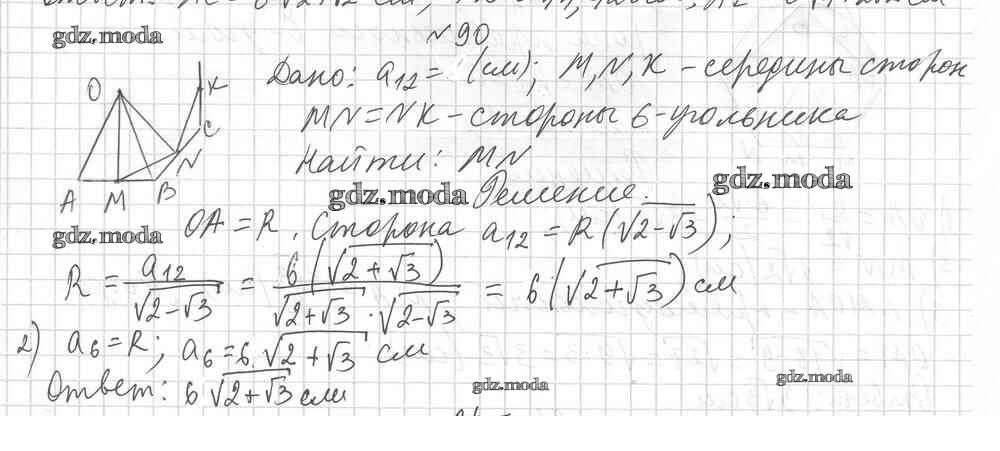 gdz.moda
№90
Дано: a₁₂ = (см); M, N, K – середины сторон
MN = NK – стороны 6-угольника
Найти: MN
O K C N A M B
gdz.moda gdz.moda
Решение.
gdz.moda
OA = R. Сторона a₁₂ = R(√(2-√3));
R = a₁₂/√(2-√3) = 6(√(2+√3))/(√(2+√3) · √(2-√3)) = 6(√(2+√3)) см
2) a₆ = R; a₆ = 6·√(2+√3) см
Ответ: 6√(2+√3) см
gdz.moda gdz.moda